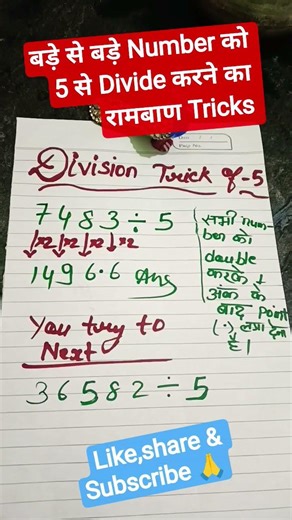 बड़े से बड़े Number को
5 से Divide करने का
रामबाण Tricks
Division Trick of-5
7483÷5
×2 ×2 ×2 ×2
1496.6 Ans
सभी num-
ber को
double
करके 1
अंक के
बाद point
(.) लगा देना
है।
You try to
Next
36582÷5
Like,share &
Subscribe 🙏